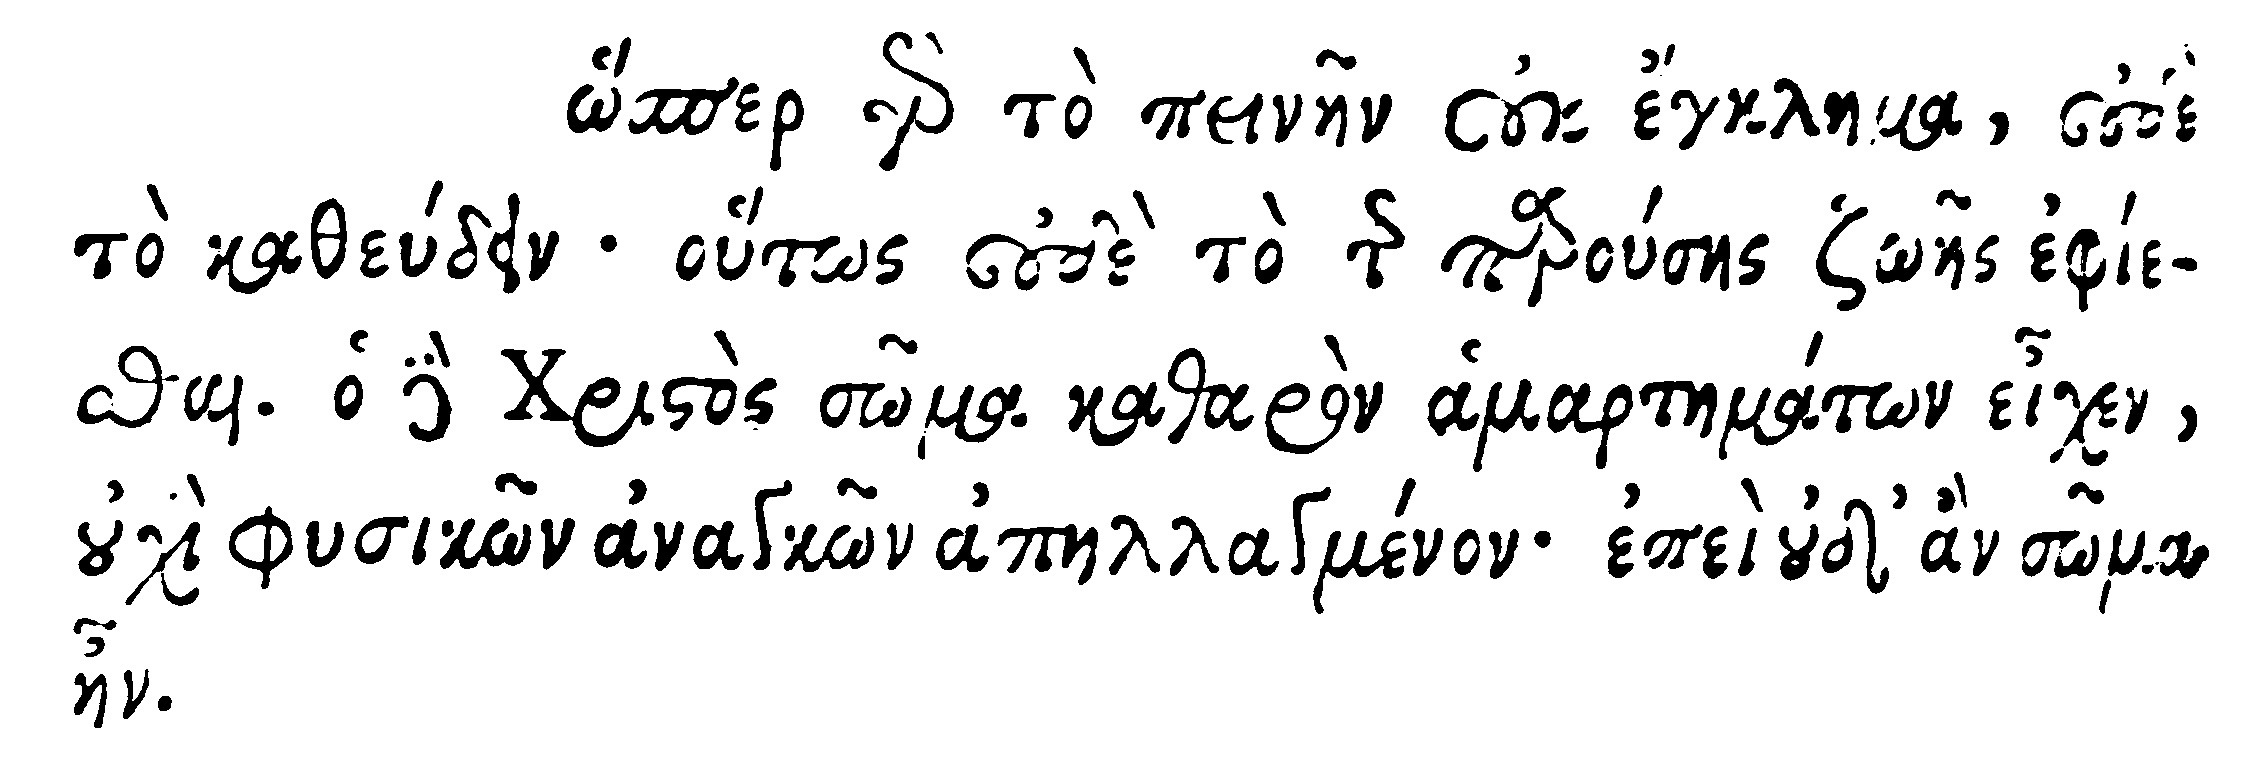 ὥσπερ γὰρ τὸ πεινῆν οὐκ ἔγκλημα, οὐδὲ
τὸ καθεύδειν· οὕτως οὐδὲ τὸ τῆς παρούσης ζωῆς ἐφίε-
σθαι. ὁ δὲ Χριστὸς σῶμα καθαρὸν ἁμαρτημάτων εἶχεν,
οὐχὶ φυσικῶν ἀναγκῶν ἀπηλλαγμένον· ἐπεὶ οὐδ' ἂν σῶμα
ἦν.